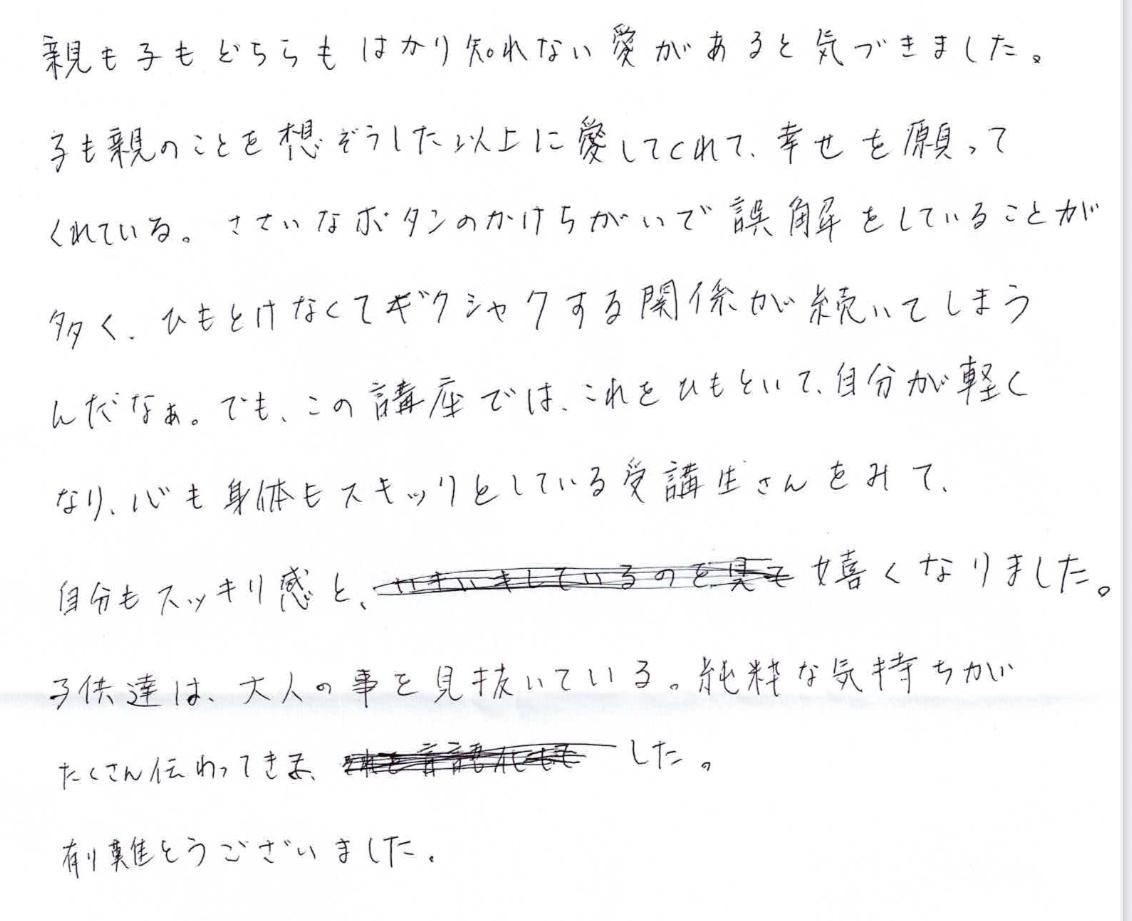 親も子もどちらもはかり知れない愛があると気づきました。
子も親のことを想ぞうした以上に愛してくれて、幸せを願って
くれている。ささいなボタンのかけちがいで誤解をしていることが
多く、ひもとけなくてギクシャクする関係が続いてしまう
んだなぁ。でも、この講座では、これをひもといて、自分が軽く
なり、心も身体もスキッリとしている受講生さんをみて、
自分もスッキリ感と、嬉くなりました。
子供達は、大人の事を見抜いている。純粋な気持ちが
たくさん伝わってきま、した。
有り難とうございました。